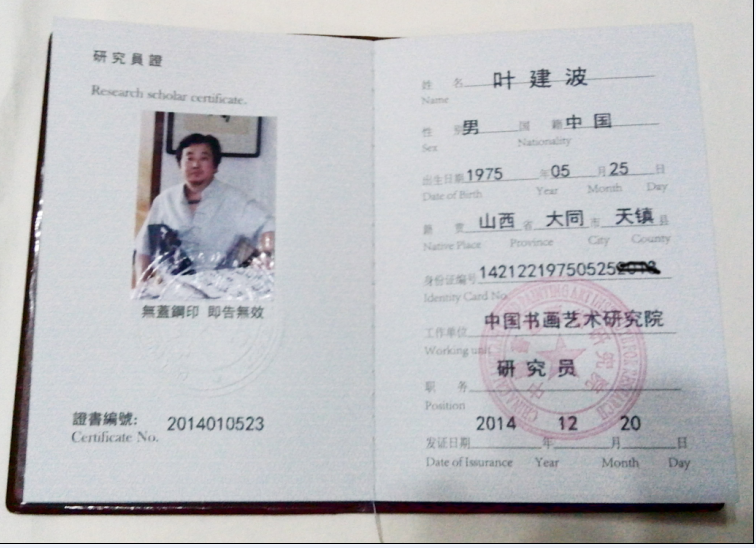 研究員證
Research scholar certificate.
無蓋鋼印 即告無效
證書編號: 2014010523
Certificate No.
姓 名 叶建波
Name
性 别 男 国 籍 中国
Sex Nationality
出生日期 1975 年 05 月 25 日
Date of Birth Year Month Day
籍 贯 山西 省 大同 市 天镇 县
Native Place Province City County
身份证编号 14212219750525
Identity Card No.
工作单位 中国书画艺术研究院
Working unit
职 务 研究员
Position
发证日期 2014 年 12 月 20 日
Date of Issurance Year Month Day